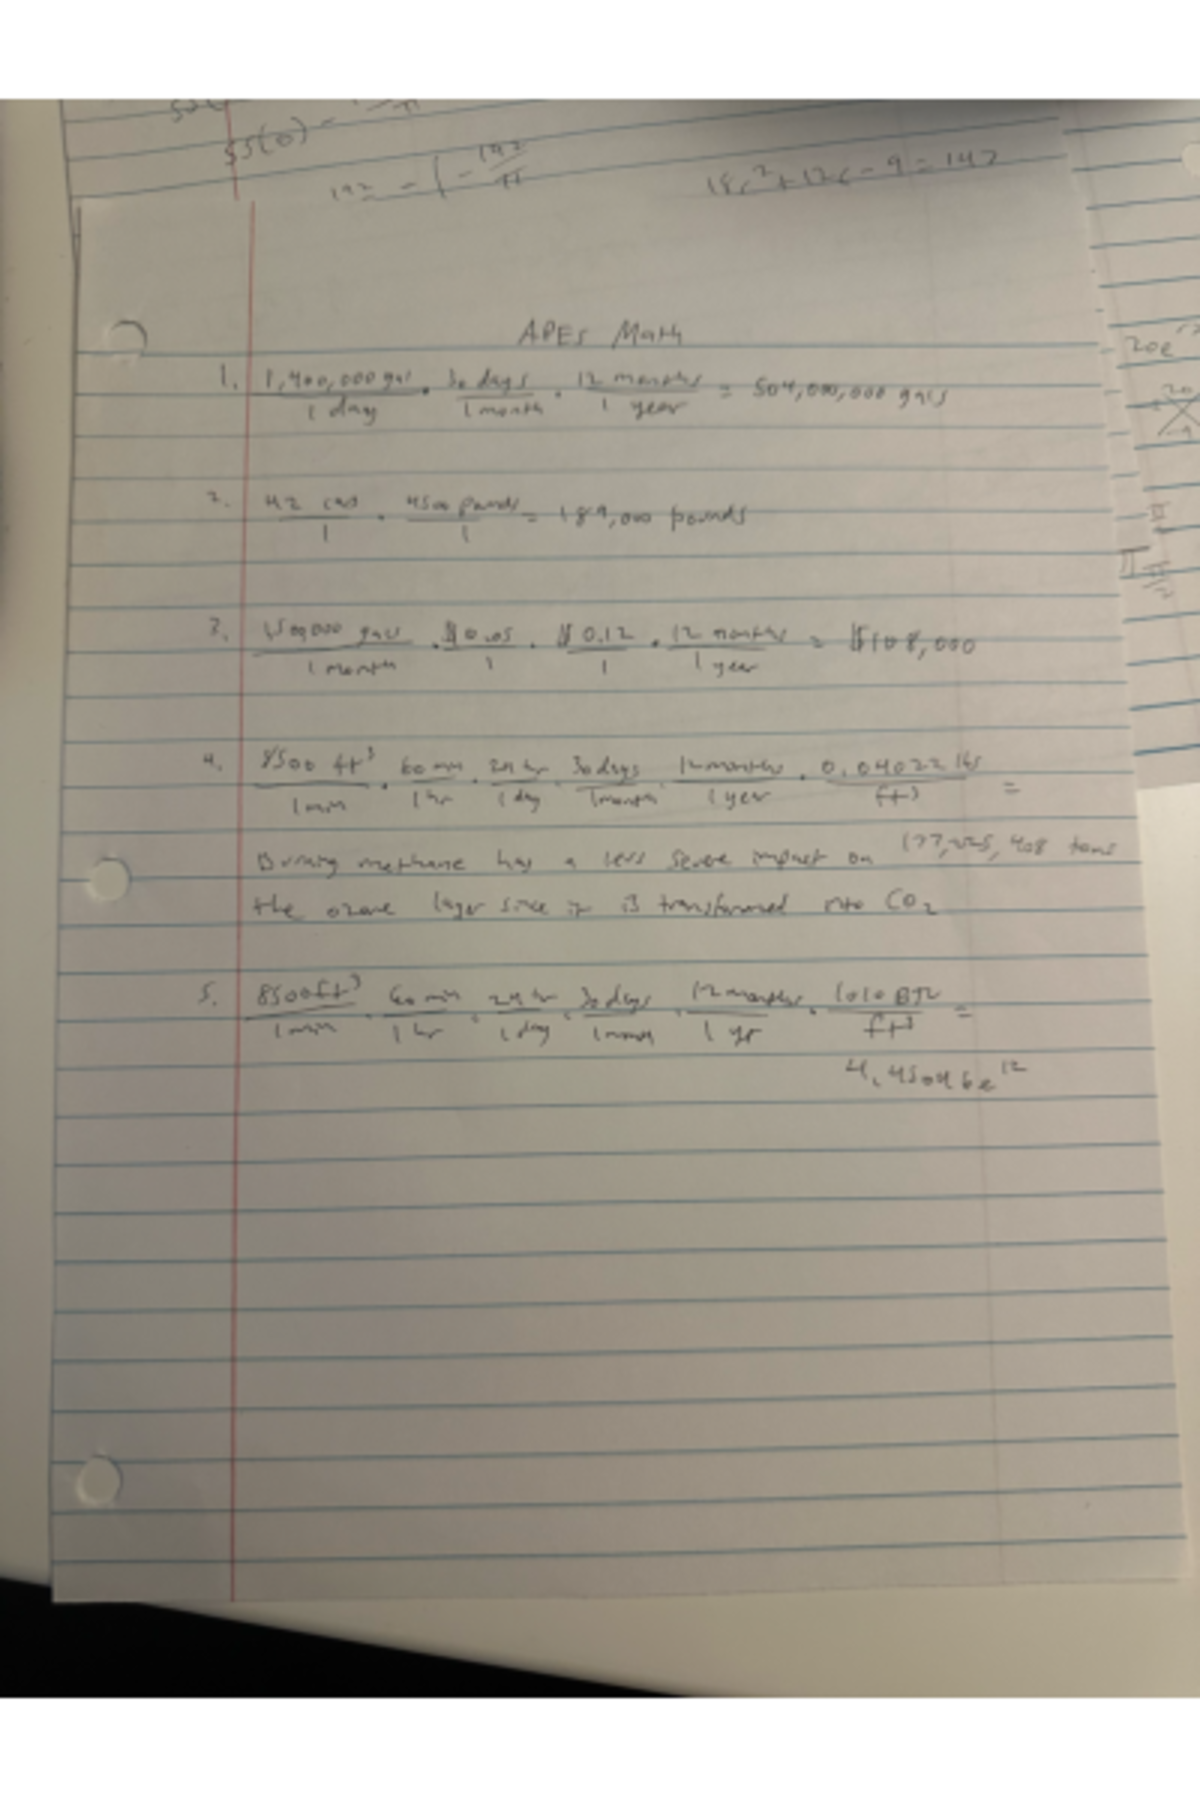 55(0) -
192 = -(-192/π
18c²+12c-9=147
20e
APEs Math
1. 1,400,000 gal / 1 day · 30 days / 1 month · 12 months / 1 year = 504,000,000 gals
2. 42 cows / 1 · 4500 pounds / 1 = 189,000 pounds
3. 1,500,000 gals / 1 month · $0.05 / 1 · $0.12 / 1 · 12 months / 1 year = $108,000
4. 8500 ft³ / 1 min · 60 min / 1 hr · 24 hr / 1 day · 30 days / 1 month · 12 months / 1 year · 0.04022 lbs / ft³ =
177,225,408 tons
Burning methane has a less severe impact on
the ozone layer since it is transformed into CO₂
5. 8500 ft³ / 1 min · 60 min / 1 hr · 24 hr / 1 day · 30 days / 1 month · 12 months / 1 yr · 1010 BTU / ft³ =
4.45046e¹²